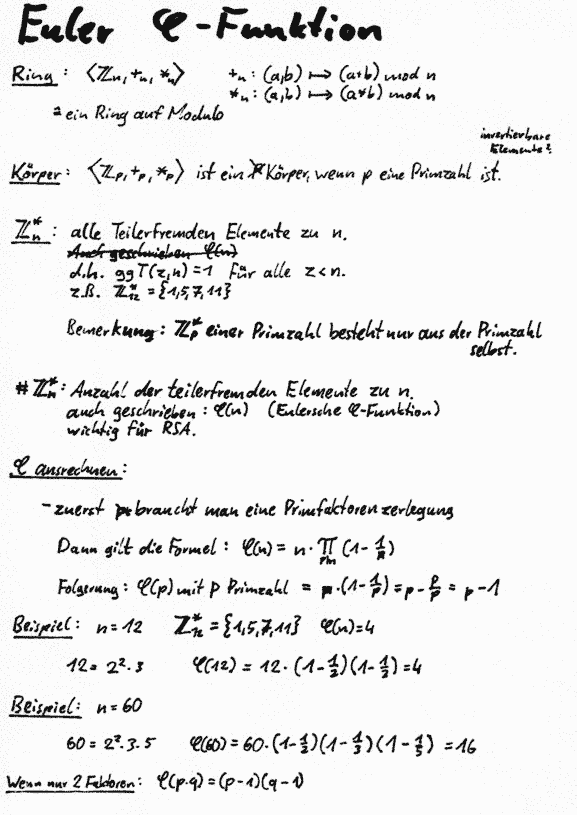 Euler φ-Funktion
Ring: ⟨ℤn, +n, *n⟩ +n: (a,b) ↦ (a+b) mod n
*n: (a,b) ↦ (a*b) mod n
≙ ein Ring auf Modulo
invertierbare
Elemente?
Körper: ⟨ℤp, +p, *p⟩ ist ein Körper, wenn p eine Primzahl ist.
ℤn*: alle Teilerfremden Elemente zu n.
Auch geschrieben φ(n)
d.h. ggT(z,n)=1 Für alle z<n.
z.B. ℤ12* = {1,5,7,11}
Bemerkung: ℤp* einer Primzahl besteht nur aus der Primzahl
selbst.
#ℤn*: Anzahl der teilerfremden Elemente zu n.
auch geschrieben: φ(n) (Eulersche φ-Funktion)
wichtig für RSA.
φ ausrechnen:
- zuerst braucht man eine Primfaktorenzerlegung
Dann gilt die Formel: φ(n) = n · ∏p|n (1 - 1/p)
Folgerung: φ(p) mit p Primzahl = p·(1 - 1/p) = p - p/p = p - 1
Beispiel: n=12 ℤn* = {1,5,7,11} φ(n)=4
12 = 2²·3 φ(12) = 12·(1 - 1/2)(1 - 1/3) = 4
Beispiel: n=60
60 = 2²·3·5 φ(60) = 60·(1 - 1/2)(1 - 1/3)(1 - 1/5) = 16
Wenn nur 2 Faktoren: φ(p·q) = (p-1)(q-1)